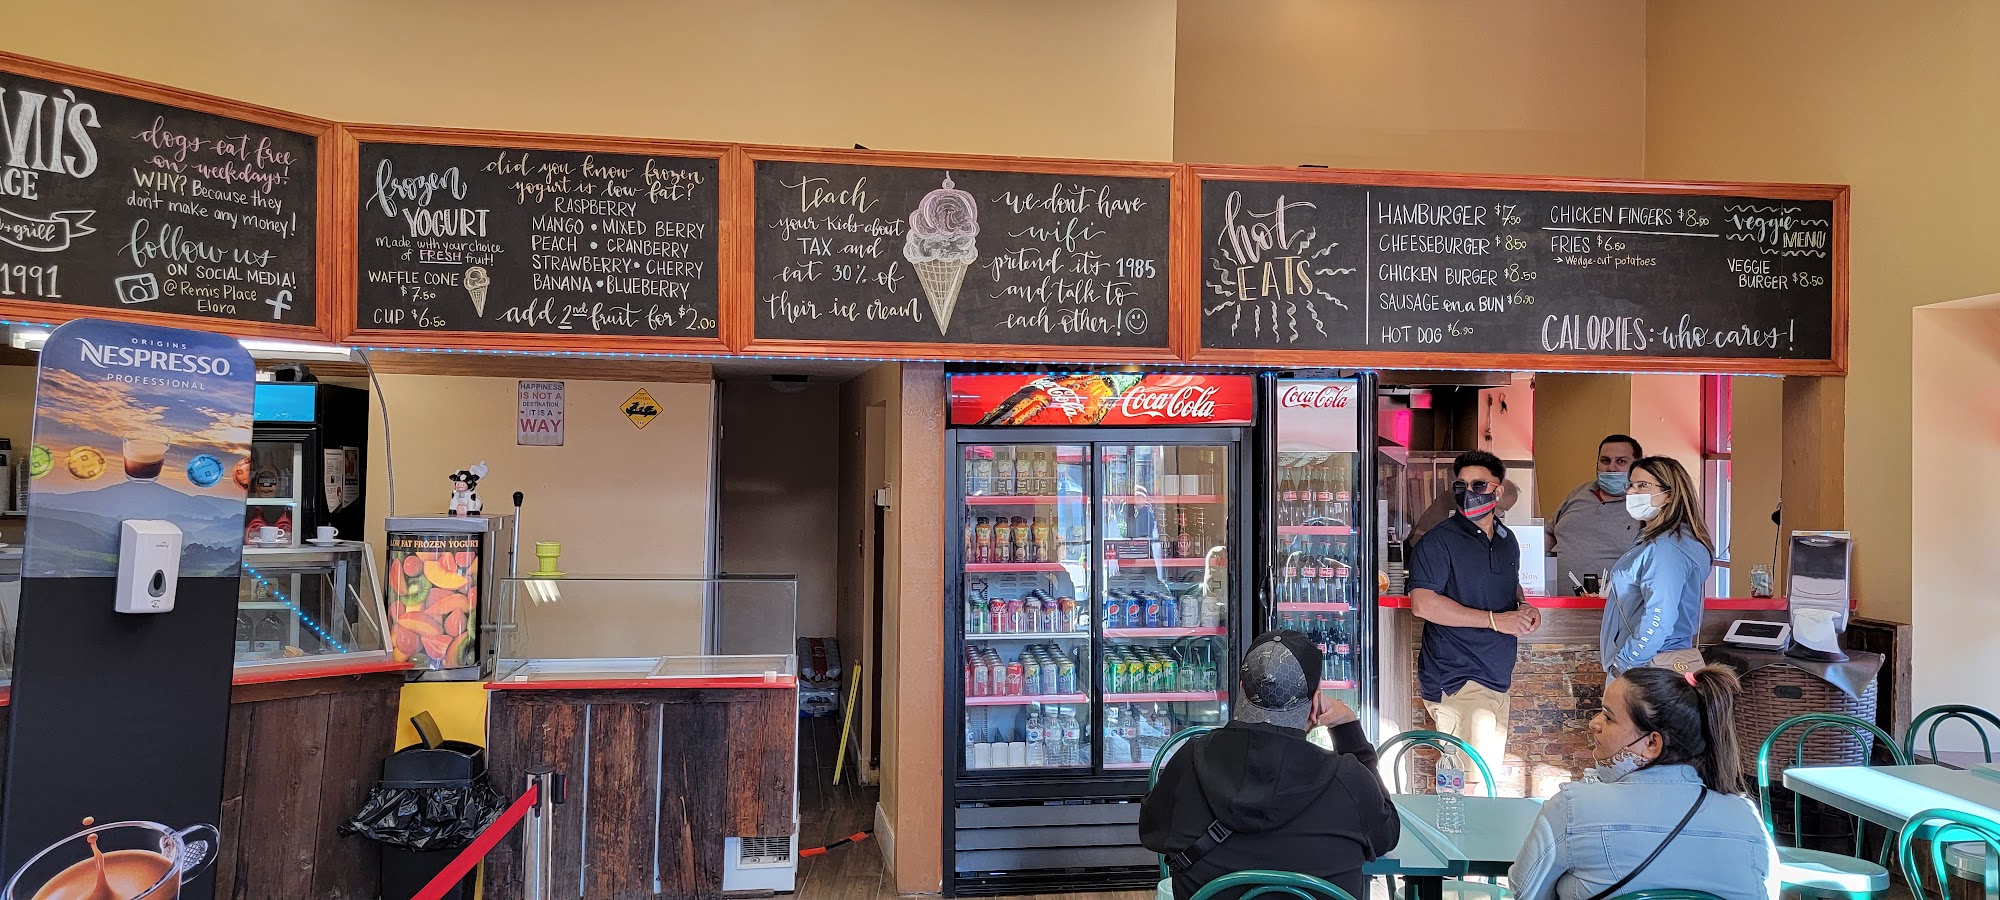 MI'S
ACE
+grill
1991
dogs eat free
on weekdays!
WHY? Because they
don't make any money!
follow us
ON SOCIAL MEDIA!
@ Remis Place
Elora
f
frozen
YOGURT
made with your choice
of FRESH fruit!
WAFFLE CONE
$7.50
CUP $6.50
did you know frozen
yogurt is low fat?
RASPBERRY
MANGO • MIXED BERRY
PEACH • CRANBERRY
STRAWBERRY • CHERRY
BANANA • BLUEBERRY
add 2nd fruit for $2.00
teach
your kids about
TAX and
eat 30% of
their ice cream
we don't have
wifi
pretend it's 1985
and talk to
each other!
hot
EATS
HAMBURGER $7.50
CHEESEBURGER $8.50
CHICKEN BURGER $8.50
SAUSAGE on a BUN $6.90
HOT DOG $6.90
CHICKEN FINGERS $8.90
FRIES $6.50
→ Wedge-cut potatoes
CALORIES: who cares!
veggie
MENU
VEGGIE
BURGER $8.50
ORIGINS
NESPRESSO
PROFESSIONAL
HAPPINESS
IS NOT A
DESTINATION,
IT IS A
WAY
LOW FAT FROZEN YOGURT
Coca-Cola
Coca-Cola
ARMOUR